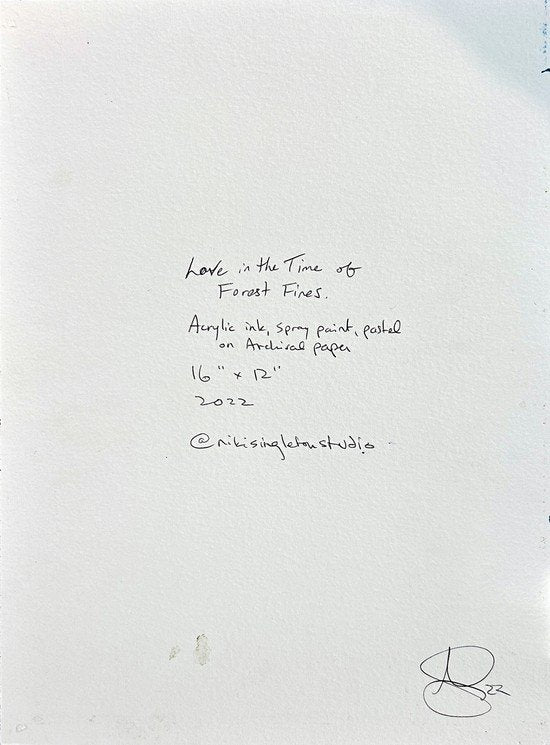 Love in the Time of
Forest Fires.
Acrylic ink, spray paint, pastel
on Archival paper
16" x 12"
2022
@nikisingletonstudio
22